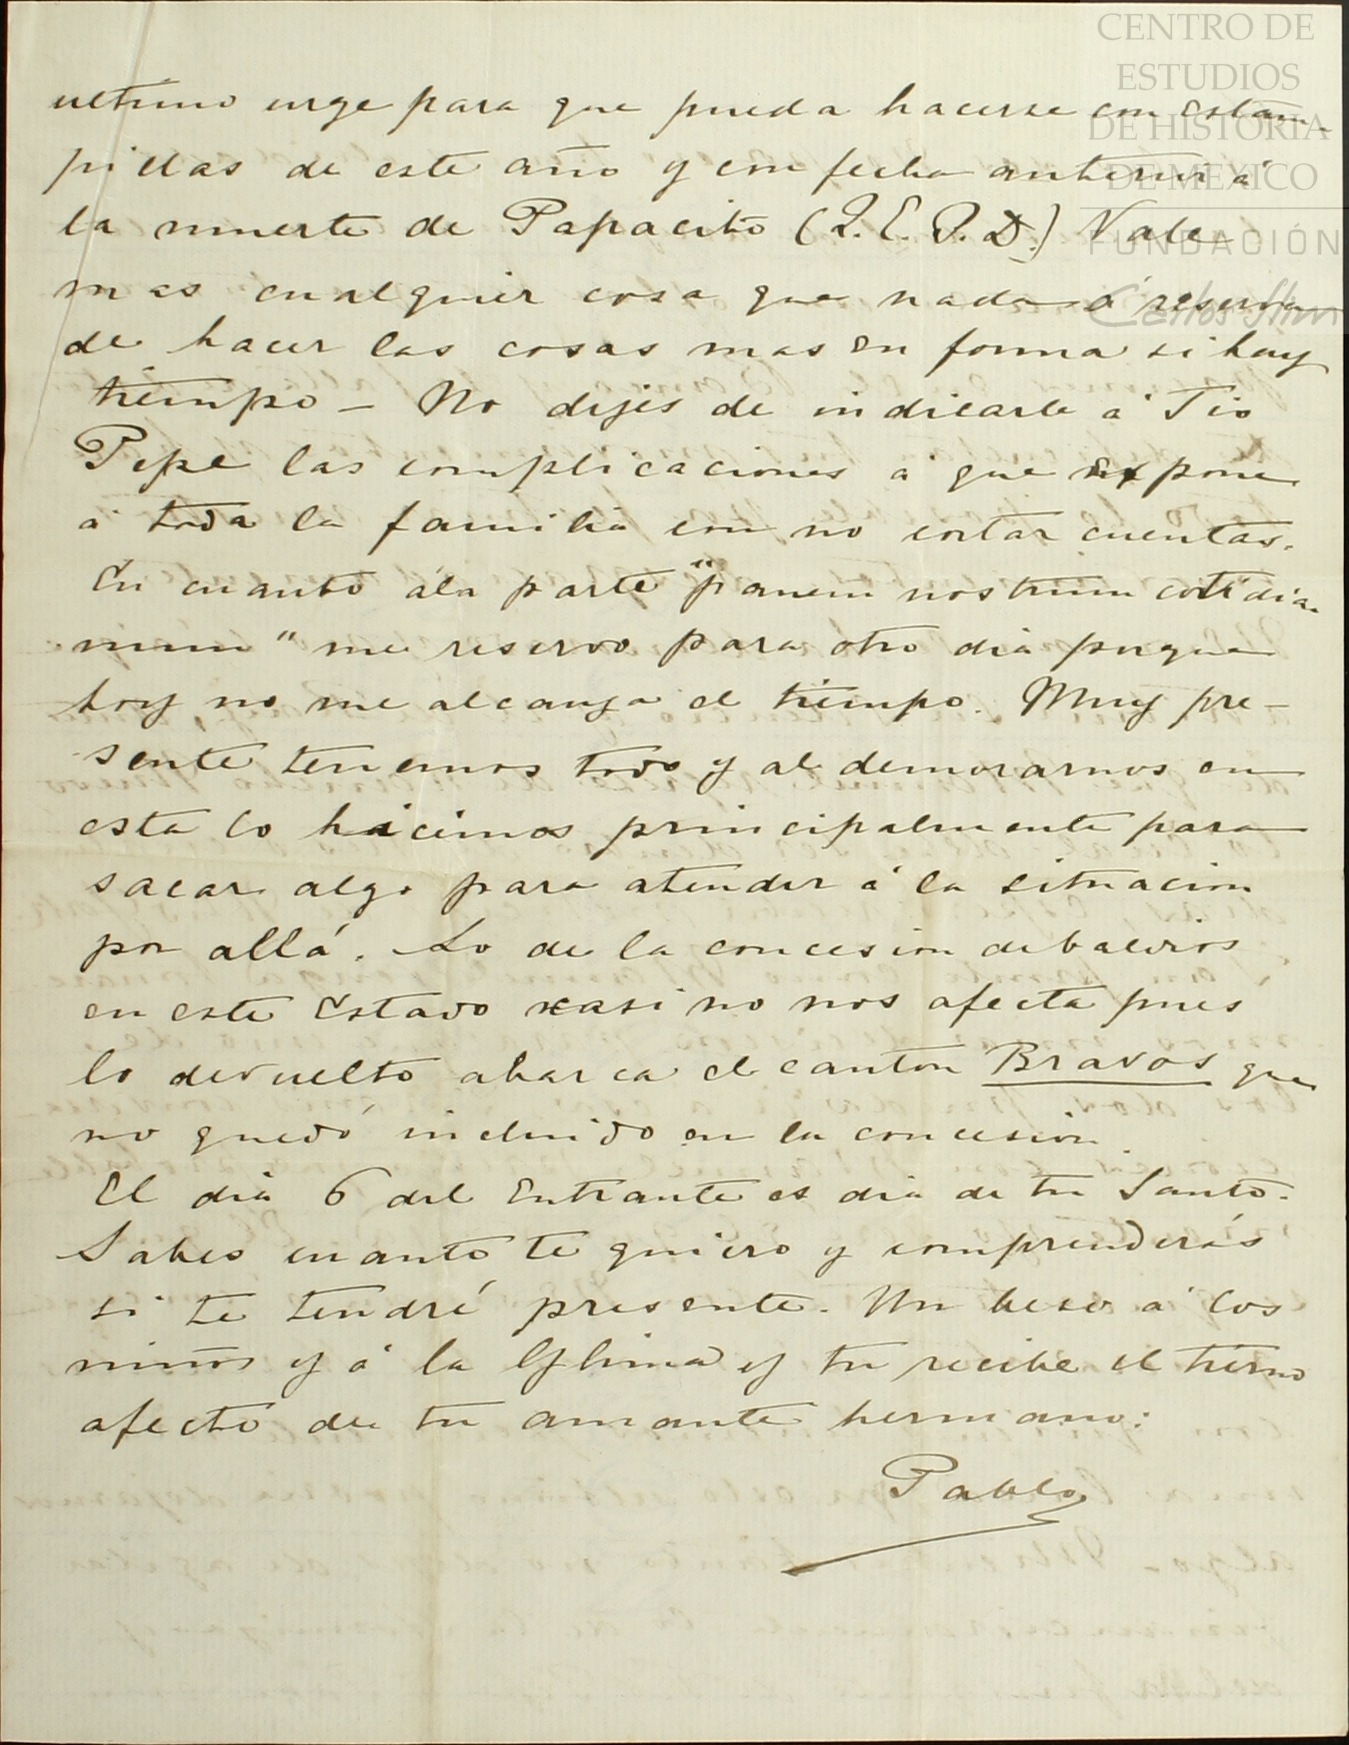 CENTRO DE
ESTUDIOS
DE HISTORIA
DE MÉXICO
FUNDACIÓN
Carlos Slim
ultimo urge para que pueda hacerse con estam-
pillas de este año y con fecha anterior á
la muerte de Papacito (Q. E. P. D.) Vale
mas cualquier cosa que nada á reserva
de hacer las cosas mas en forma si hay
tiempo – No dejes de indicarle á Tio
Pepe las complicaciones á que expone
á toda la familia con no cortar cuentas.
En cuanto á la parte "panem nostrum cotidia-
num" me reservo para otro dia porque
hoy no me alcanza el tiempo. Muy pre-
sente tenemos todo y al demorarnos en
esta lo hicimos principalmente para
sacar algo para atender á la situacion
por allá. Lo de la concesion de baldios
en este Estado casi no nos afecta pues
lo devuelto abarca el canton Bravos que
no quedó incluido en la concesion
El dia 6 del entrante es dia de tu Santo.
Sabes cuanto te quiero y comprenderás
si te tendré presente. Un beso á los
niños y á la y tu recibe el tierno
afecto de tu amante hermano:
Pablo